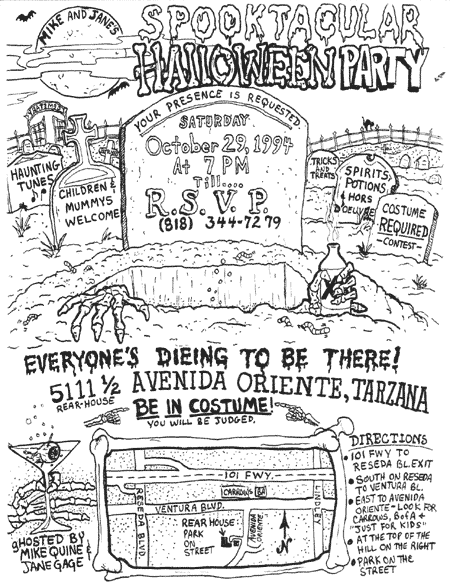 MIKE AND JANE'S
SPOOKTACULAR
HALLOWEEN PARTY
YOUR PRESENCE IS REQUESTED
SATURDAY
October 29, 1994
At 7 PM
Till....
R.S.V.P.
(818) 344-7279
HAUNTING
TUNES
CHILDREN &
MUMMYS
WELCOME
TRICKS
AND
TREATS
SPIRITS,
POTIONS,
& HORS
D'OEUVRE
COSTUME
REQUIRED
-CONTEST-
EVERYONE'S DIEING TO BE THERE!
5111 ½ AVENIDA ORIENTE, TARZANA
REAR-HOUSE
BE IN COSTUME!
YOU WILL BE JUDGED.
HOSTED BY
MIKE QUINE &
JANE GAGE
101 FWY.
CARROWS
BA
RESEDA BLVD
LINDLEY
VENTURA BLVD.
REAR HOUSE
PARK
ON
STREET
AVENIDA
ORIENTE
N
DIRECTIONS
• 101 FWY TO
RESEDA BL. EXIT
• SOUTH ON RESEDA
TO VENTURA BL.
• EAST TO AVENIDA
ORIENTE - LOOK FOR
CARROWS, BofA &
"JUST FOR KIDS"
• AT THE TOP OF THE
HILL ON THE RIGHT
• PARK ON THE
STREET